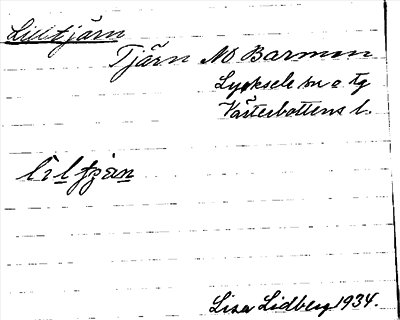 Lilltjärn
Tjärn N Barmon
Lycksele sn o tg
Västerbottens l.
lilt̠jä̠n
Lisa Lidberg 1934.